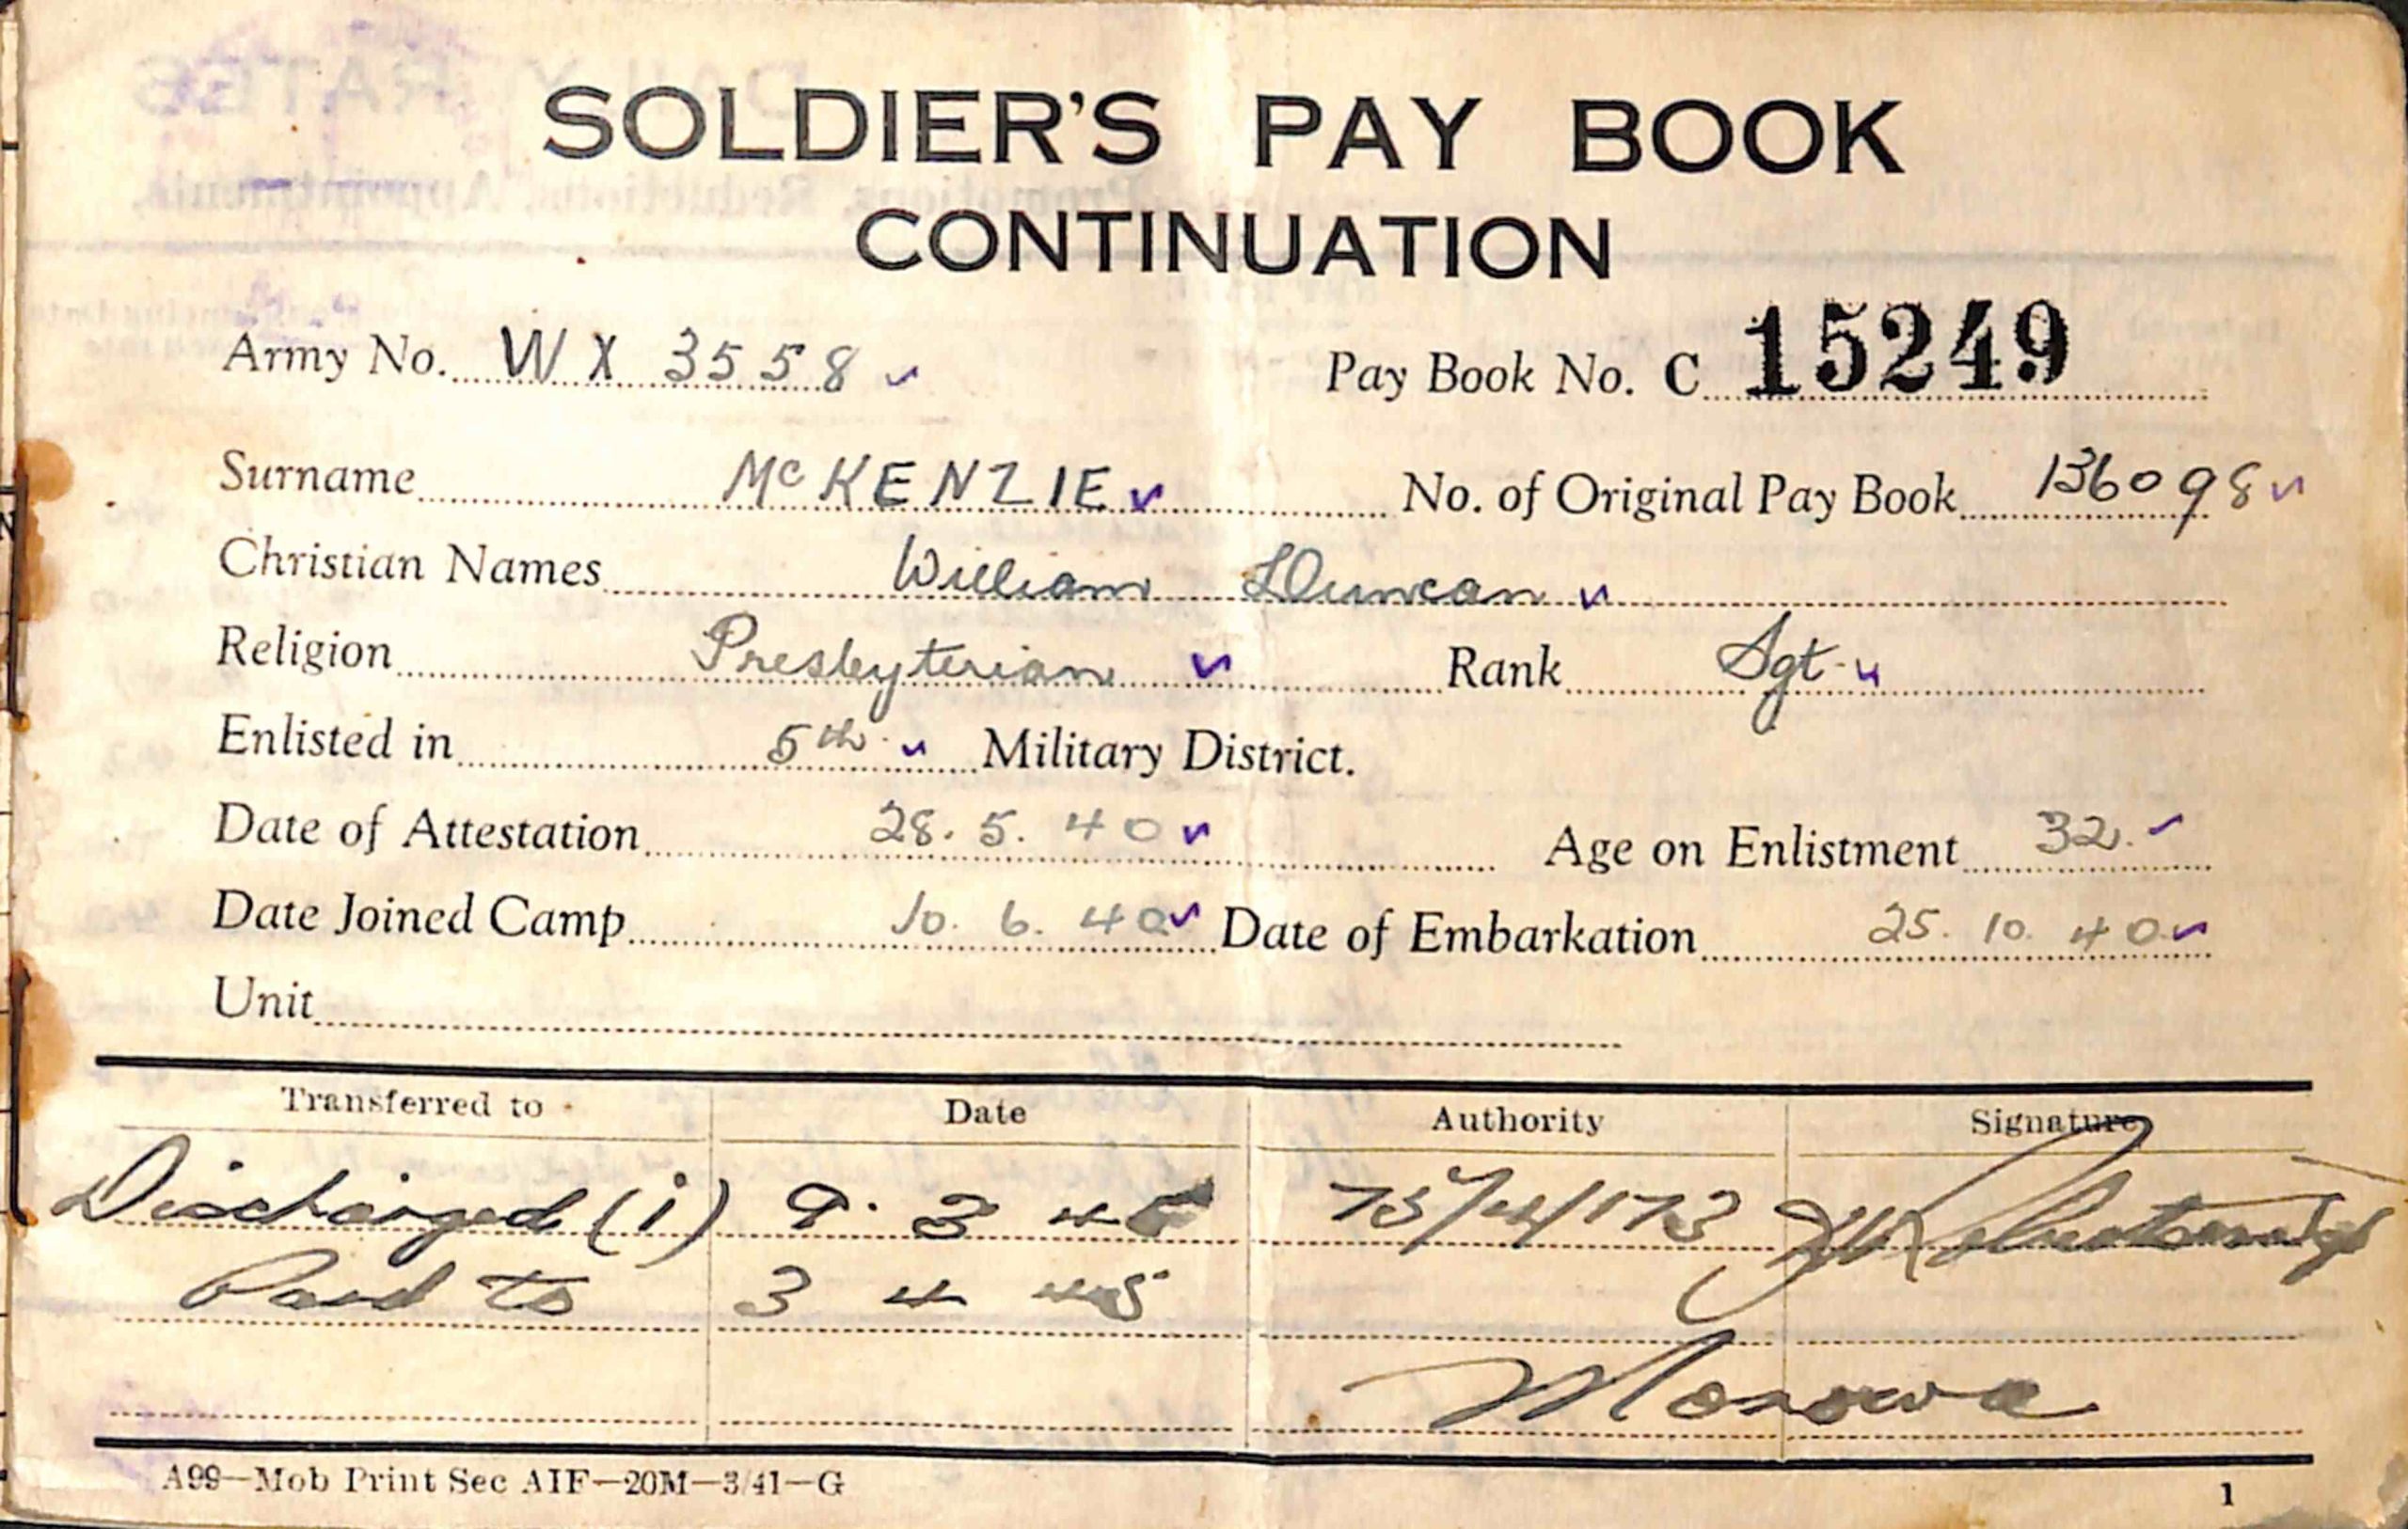 SOLDIER'S PAY BOOK
CONTINUATION
Army No. WX 3558 Pay Book No. C 15249
Surname McKENZIE No. of Original Pay Book 136098
Christian Names William Duncan
Religion Presbyterian Rank Sgt
Enlisted in 5th Military District.
Date of Attestation 28. 5. 40 Age on Enlistment 32.
Date Joined Camp 10. 6. 40 Date of Embarkation 25. 10. 40
Unit
Transferred to Date Authority Signature
Discharged (i) 9. 3 45
Paid to 3 4 45
A99—Mob Print Sec AIF—20M—3/41—G 1